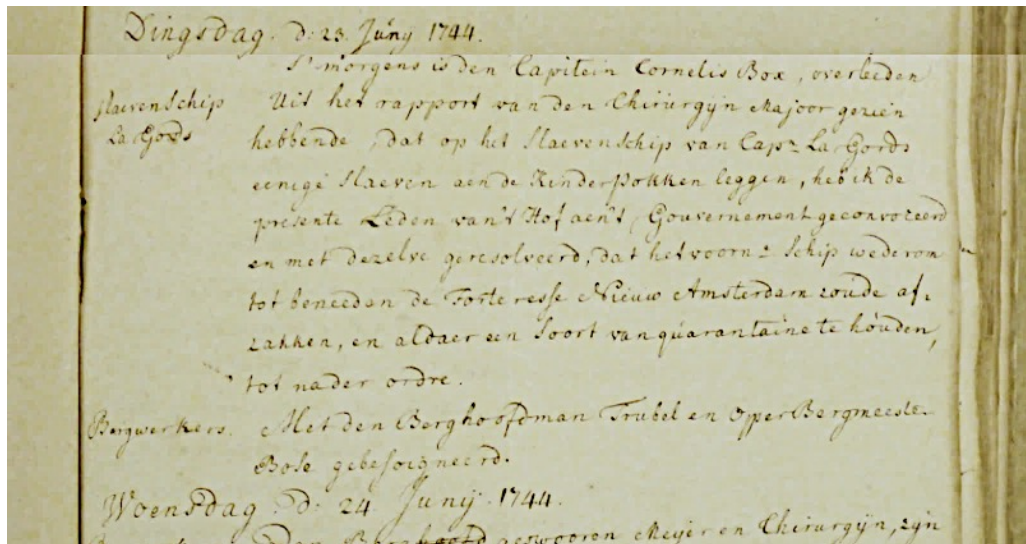 Dingsdag. d: 23. Juny 1744.
S'morgens is den Capitein Cornelis Box, overleeden
Slaevenschip
La Gords
Uit het rapport van den Chirurgyn Majoor gezien
hebbende, dat op het Slaevenschip van Capn La Gords
eenige Slaeven aen de Kinderpokken leggen, heb ik de
presente Leden van't Hof aen't Gouvernement geconvoceerd
en met dezelve geresolveerd, dat het voorn: Schip wederom
tot beneeden de Forteresse Nieuw Amsterdam zoude af,
zakken, en aldaer een Soort van quarantaine te houden,
tot nader ordre.
Bergwerkers.
Met den Berghoofdman Trubel en Opper Bergmeester
Bose gebesoigneerd.
Woensdag. d: 24. Junij. 1744.
geswooren Meyer en Chirurgyn, zyn